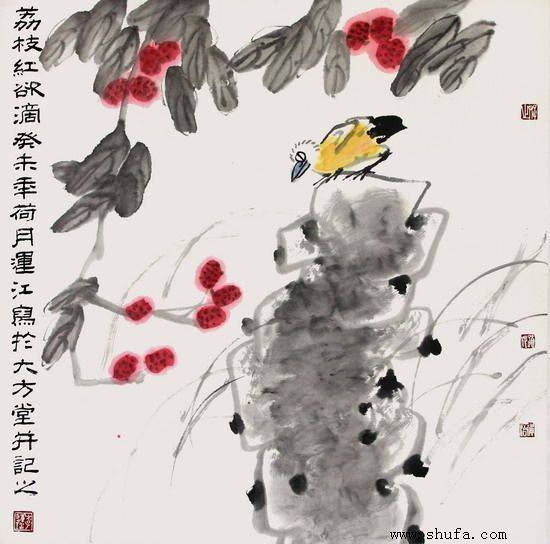 荔枝紅欲滴癸未年荷月運江寫於大方堂并記之
www.shufa.com